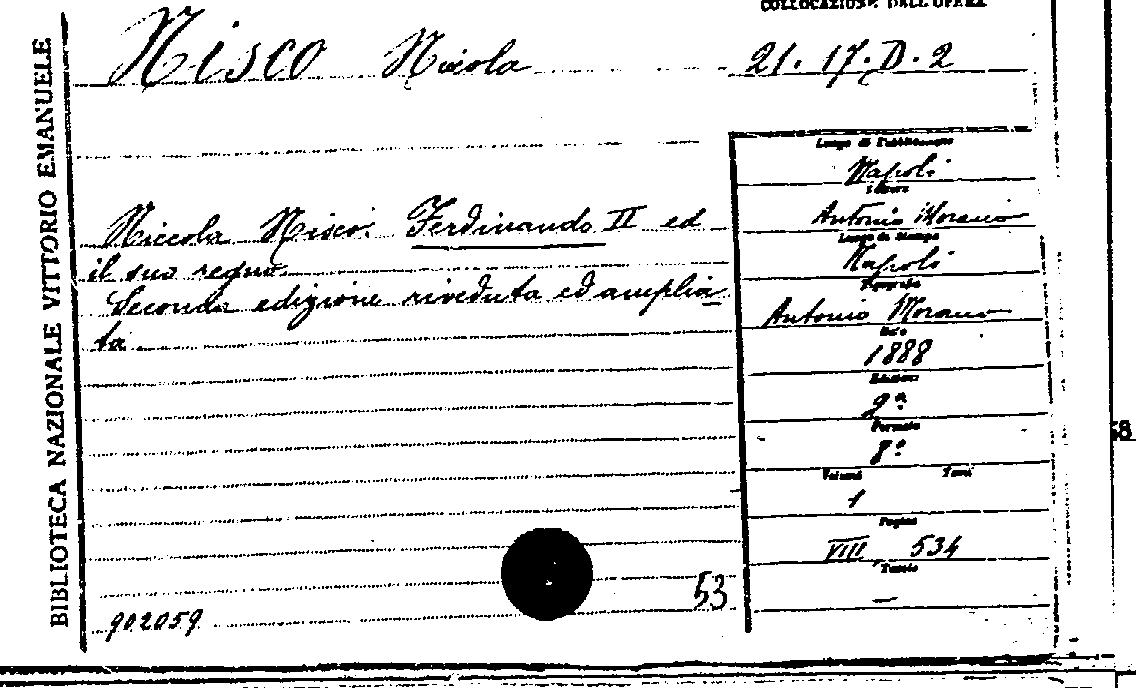 COLLOCAZIONE DELL'OPERA
NISCO Nicola
21. 17. D. 2
BIBLIOTECA NAZIONALE VITTORIO EMANUELE
Niccola Nisco: Ferdinando II ed
il suo regno.
Seconda edizione riveduta ed amplia-
ta.
Luogo di Pubblicazione
Napoli
Editore
Antonio Morano
Luogo di Stampa
Napoli
Tipografia
Antonio Morano
Data
1888
Edizione
2ª
Formato
8º
Volumi Tomi
1
Pagine
VIII, 534
Tavole
—
53
902059
58